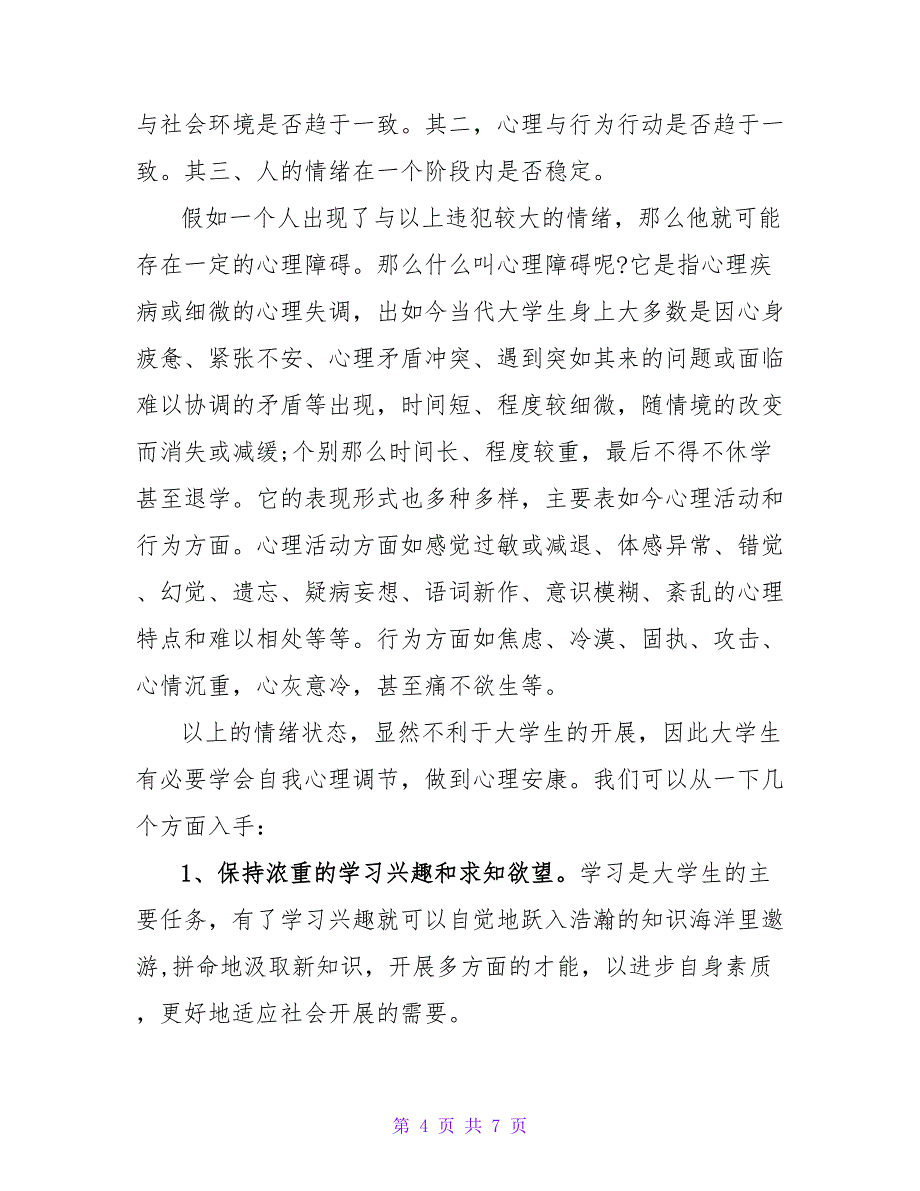 与社会环境是否趋于一致。其二，心理与行为行动是否趋于一
致。其三、人的情绪在一个阶段内是否稳定。
假如一个人出现了与以上违犯较大的情绪，那么他就可能
存在一定的心理障碍。那么什么叫心理障碍呢?它是指心理疾
病或细微的心理失调，出如今当代大学生身上大多数是因心身
疲惫、紧张不安、心理矛盾冲突、遇到突如其来的问题或面临
难以协调的矛盾等出现，时间短、程度较细微，随情境的改变
而消失或减缓;个别那么时间长、程度较重，最后不得不休学
甚至退学。它的表现形式也多种多样，主要表如今心理活动和
行为方面。心理活动方面如感觉过敏或减退、体感异常、错觉
、幻觉、遗忘、疑病妄想、语词新作、意识模糊、紊乱的心理
特点和难以相处等等。行为方面如焦虑、冷漠、固执、攻击、
心情沉重，心灰意冷，甚至痛不欲生等。
以上的情绪状态，显然不利于大学生的开展，因此大学生
有必要学会自我心理调节，做到心理安康。我们可以从一下几
个方面入手：
1、保持浓重的学习兴趣和求知欲望。学习是大学生的主
要任务，有了学习兴趣就可以自觉地跃入浩瀚的知识海洋里遨
游,拼命地汲取新知识，开展多方面的才能，以进步自身素质
，更好地适应社会开展的需要。
第 4 页 共 7 页